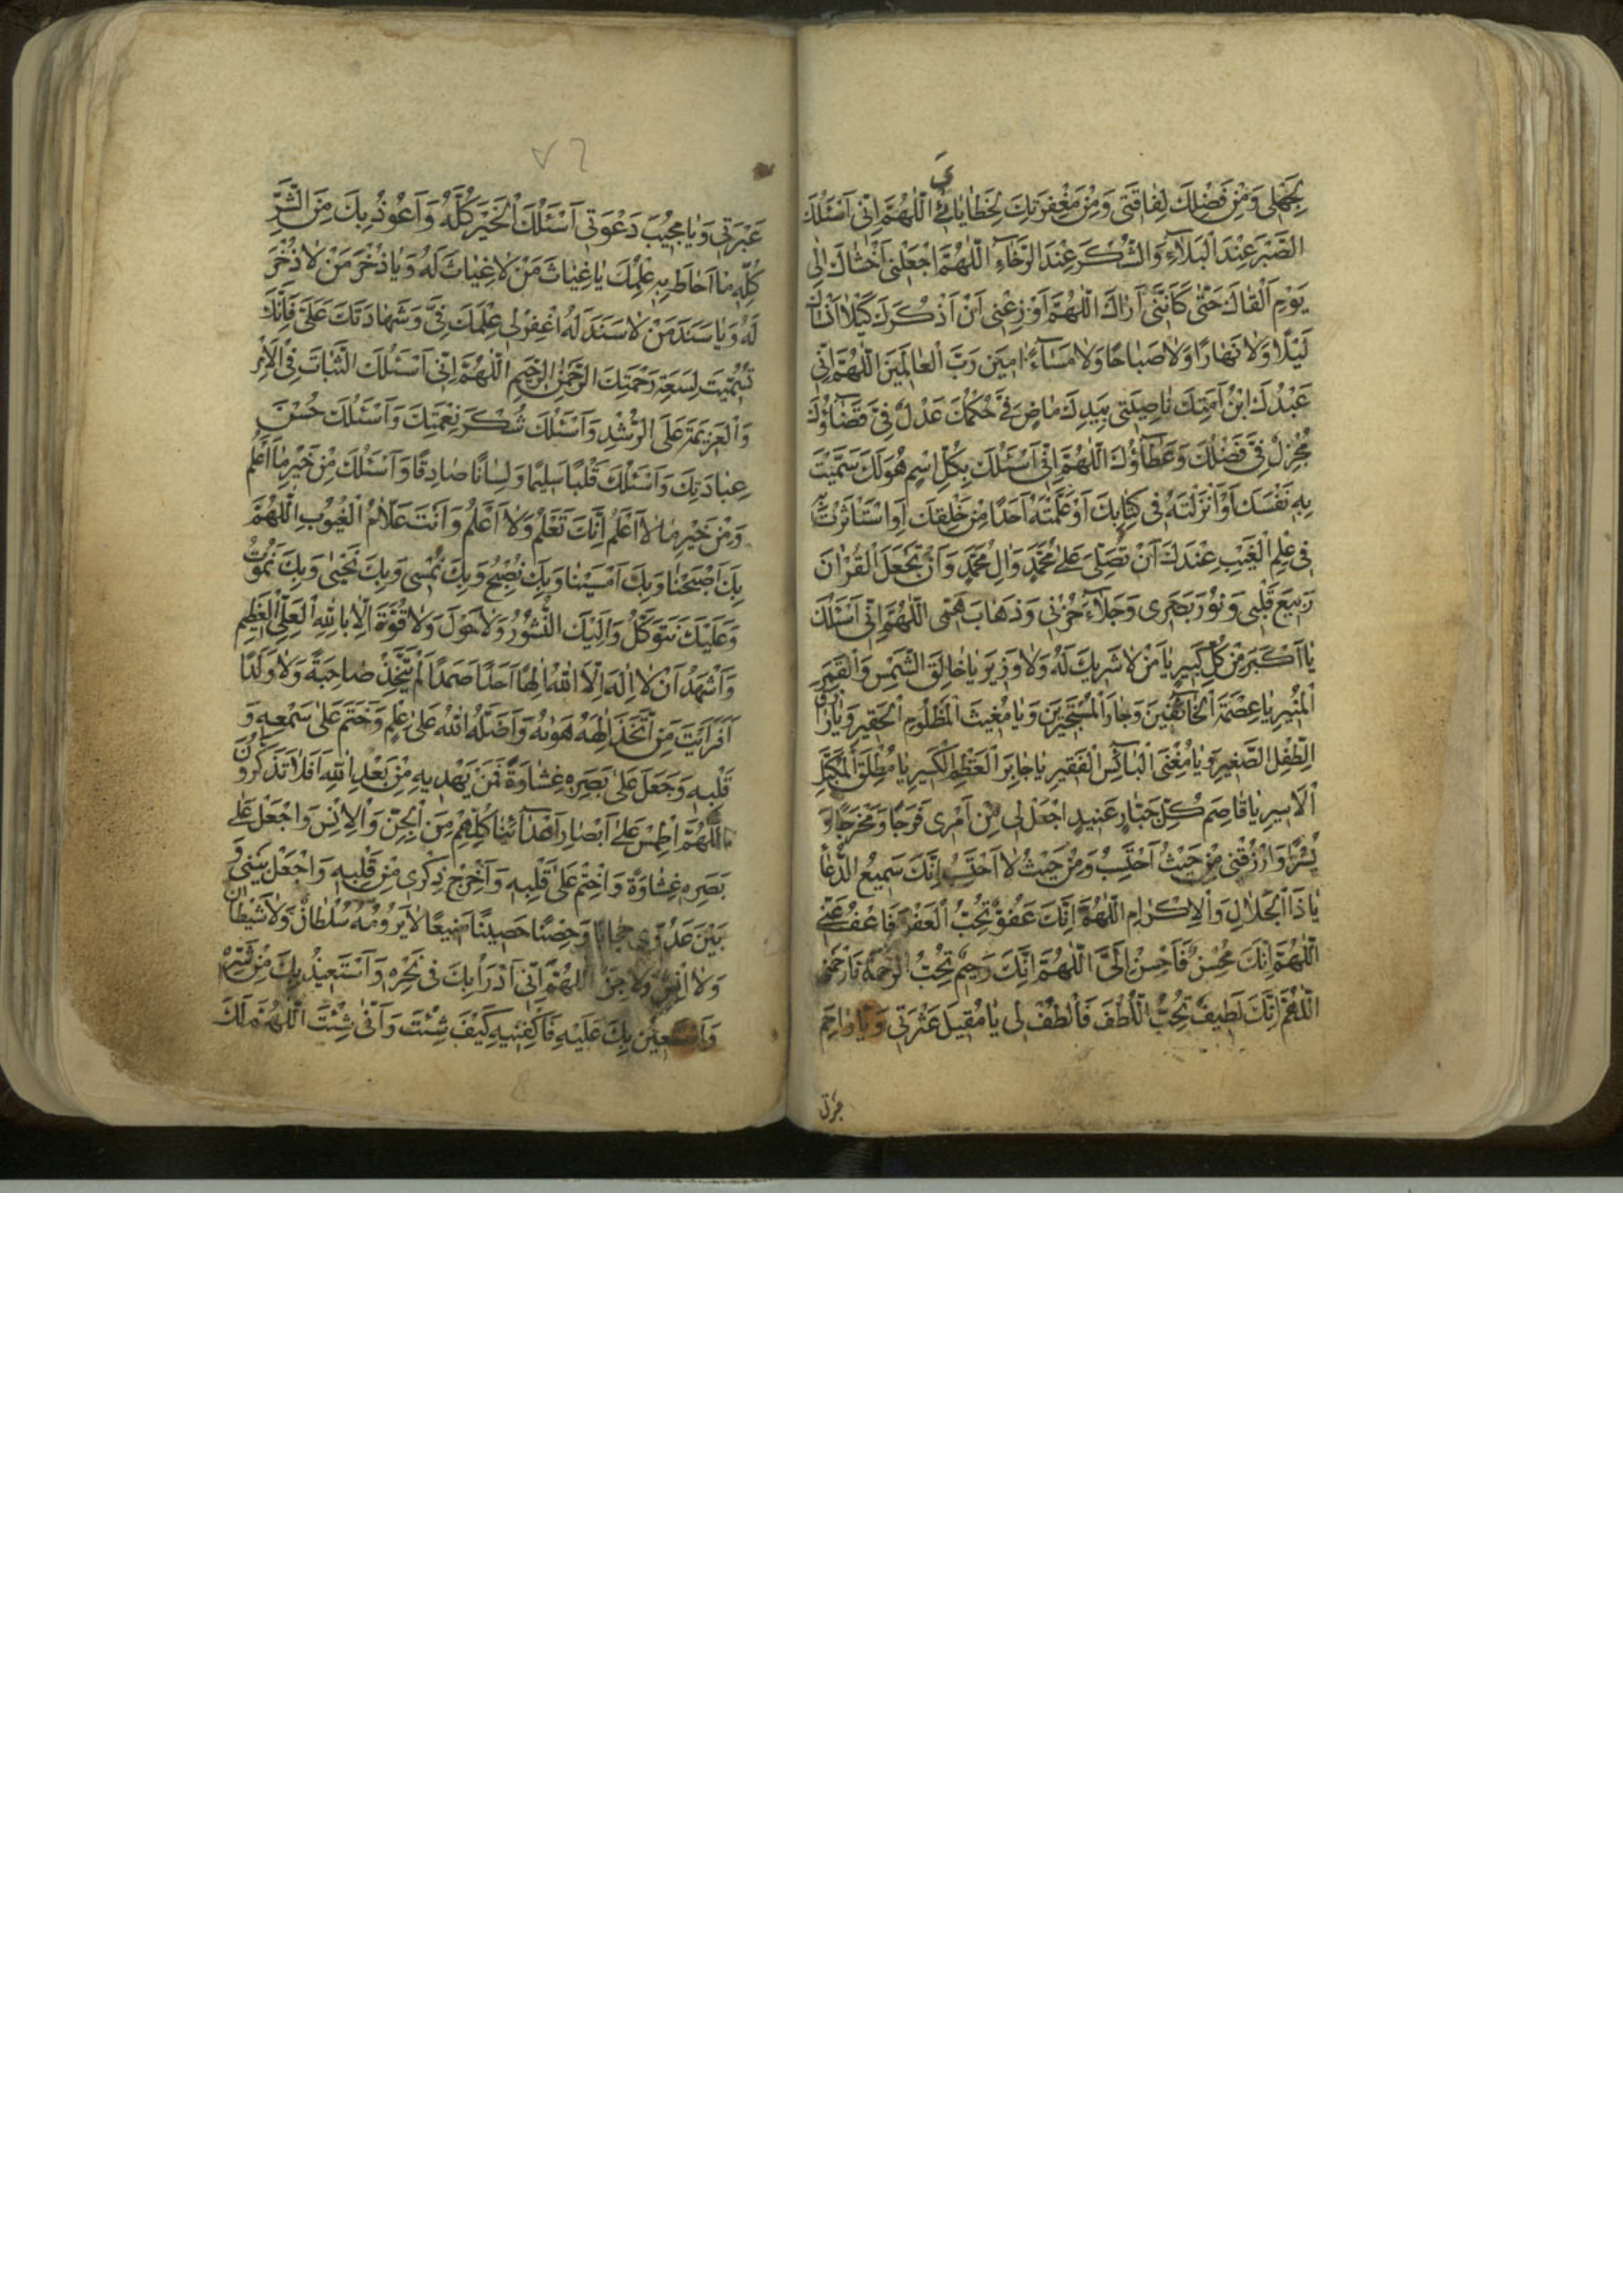 بِجَهْلى وَمِنْ فَضْلِكَ لِفٰاقَتى وَمِنْ مَغْفِرَتِكَ لِخَطٰايٰائ اَللّٰهُمَّ اِنّى اَسْئَلُكَ
ىَ
الصَّبْرَ عِنْدَ الْبَلٰآءِ وَالشُّكْرَ عِنْدَ الرَّخٰآءِ اَللّٰهُمَّ اجْعَلْنى اَخْشٰاكَ اِلٰى
يَوْمِ اَلْقٰاكَ حَتّٰى كَاَنَّنى اَرٰاكَ اَللّٰهُمَّ اَوْزِعْنى اَنْ اَذْكُرَكَ كَيْلٰا اَنْسٰاكَ
لَيْلًا وَلٰا نَهٰارًا وَلٰا صَبٰاحًا وَلٰا مَسٰآءً اٰمينَ رَبَّ الْعٰالَمينَ اَللّٰهُمَّ اِنّى
عَبْدُكَ ابْنُ اَمَتِكَ نٰاصِيَتى بِيَدِكَ مٰاضٍ فِىَّ حُكْمُكَ عَدْلٌ فِىَّ قَضٰآؤُكَ
مُجْزِلٌ فِىَّ فَضْلُكَ وَعَطٰآؤُكَ اَللّٰهُمَّ اِنّى اَسْئَلُكَ بِكُلِّ اسْمٍ هُوَ لَكَ سَمَّيْتَ
بِهِ نَفْسَكَ اَوْ اَنْزَلْتَهُ فى كِتٰابِكَ اَوْ عَلَّمْتَهُ اَحَدًا مِنْ خَلْقِكَ اَوِ اسْتَأْثَرْتَ بِهِ
فى عِلْمِ الْغَيْبِ عِنْدَكَ اَنْ تُصَلِّىَ عَلىٰ مُحَمَّدٍ وَاٰلِ مُحَمَّدٍ وَاَنْ تَجْعَلَ الْقُرْاٰنَ
رَبيعَ قَلْبى وَنُورَ بَصَرى وَجَلٰآءَ حُزْنى وَذَهٰابَ هَمّى اَللّٰهُمَّ اِنّى اَسْئَلُكَ
يٰا اَكْبَرَ مِنْ كُلِّ كَبيرٍ يٰا مَنْ لٰا شَريكَ لَهُ وَلٰا وَزيرَ يٰا خٰالِقَ الشَّمْسِ وَالْقَمَرِ
الْمُنيرِ يٰا عِصْمَةَ الْخٰآئِفينَ وَجٰارَ الْمُسْتَجيرينَ وَيٰا مُغيثَ الْمَظْلُومِ الْحَقيرِ وَيٰا رٰازِقَ
الطِّفْلِ الصَّغيرِ وَيٰا مُغْنِىَ الْبٰآئِسِ الْفَقيرِ يٰا جٰابِرَ الْعَظْمِ الْكَسيرِ يٰا مُطْلِقَ الْمُكَبَّلِ
الْاَسيرِ يٰا قٰاصِمَ كُلِّ جَبّٰارٍ عَنيدٍ اجْعَلْ لى مِنْ اَمْرى فَرَجًا وَمَخْرَجًا وَ
يُسْرًا وَارْزُقْنى مِنْ حَيْثُ اَحْتَسِبُ وَمِنْ حَيْثُ لٰا اَحْتَسِبُ اِنَّكَ سَميعُ الدُّعٰآءِ
يٰا ذَا الْجَلٰالِ وَالْاِكْرٰامِ اَللّٰهُمَّ اِنَّكَ عَفُوٌّ تُحِبُّ الْعَفْوَ فَاعْفُ عَنّى
اَللّٰهُمَّ اِنَّكَ مُحْسِنٌ فَاَحْسِنْ اِلَىَّ اَللّٰهُمَّ اِنَّكَ رَحيمٌ تُحِبُّ الرَّحْمَةَ فَارْحَمْنى
اَللّٰهُمَّ اِنَّكَ لَطيفٌ تُحِبُّ اللُّطْفَ فَالْطُفْ لى يٰا مُقيلَ عَثْرَتى وَيٰا رٰاحِمَ
عَبْرَتى وَيٰا مُجيبَ دَعْوَتى اَسْئَلُكَ الْخَيْرَ كُلَّهُ وَاَعُوذُ بِكَ مِنَ الشَّرِّ
كُلِّهِ مٰا اَحٰاطَ بِهِ عِلْمُكَ يٰا غِيٰاثَ مَنْ لٰا غِيٰاثَ لَهُ وَيٰا ذُخْرَ مَنْ لٰا ذُخْرَ
لَهُ وَيٰا سَنَدَ مَنْ لٰا سَنَدَ لَهُ اغْفِرْ لى عِلْمَكَ فِىَّ وَشَهٰادَتَكَ عَلَىَّ فَاِنَّكَ
تُسُمّيتَ لِسَعَةِ رَحْمَتِكَ الرَّحْمٰنَ الرَّحيمَ اَللّٰهُمَّ اِنّى اَسْئَلُكَ الثَّبٰاتَ فِى الْاَمْرِ
وَالْعَزيمَةَ عَلَى الرُّشْدِ وَاَسْئَلُكَ شُكْرَ نِعْمَتِكَ وَاَسْئَلُكَ حُسْنَ
عِبٰادَتِكَ وَاَسْئَلُكَ قَلْبًا سَليمًا وَلِسٰانًا صٰادِقًا وَاَسْئَلُكَ مِنْ خَيْرِ مٰا اَعْلَمُ
وَمِنْ خَيْرِ مٰا لٰا اَعْلَمُ اِنَّكَ تَعْلَمُ وَلٰا اَعْلَمُ وَاَنْتَ عَلّٰامُ الْغُيُوبِ اَللّٰهُمَّ
بِكَ اَصْبَحْنٰا وَبِكَ اَمْسَيْنٰا وَبِكَ نُصْبِحُ وَبِكَ نُمْسى وَبِكَ نَحْيىٰ وَبِكَ نَمُوتُ
وَعَلَيْكَ نَتَوَكَّلُ وَاِلَيْكَ النُّشُورُ وَلٰا حَوْلَ وَلٰا قُوَّةَ اِلّٰا بِاللّٰهِ الْعَلِىِّ الْعَظيمِ
وَاَشْهَدُ اَنْ لٰا اِلٰهَ اِلَّا اللّٰهُ اِلٰهًا اَحَدًا صَمَدًا لَمْ يَتَّخِذْ صٰاحِبَةً وَلٰا وَلَدًا
اَفَرَاَيْتَ مَنِ اتَّخَذَ اِلٰهَهُ هَوٰيهُ وَاَضَلَّهُ اللّٰهُ عَلىٰ عِلْمٍ وَخَتَمَ عَلىٰ سَمْعِهِ وَ
قَلْبِهِ وَجَعَلَ عَلىٰ بَصَرِهِ غِشٰاوَةً فَمَنْ يَهْديهِ مِنْ بَعْدِ اللّٰهِ اَفَلٰا تَذَكَّرُونَ
اَللّٰهُمَّ اطْمِسْ عَلىٰ اَبْصٰارِ اَعْدٰآئِنٰا كُلِّهِمْ مِنَ الْجِنِّ وَالْاِنْسِ وَاجْعَلْ عَلىٰ
بَصَرِهِ غِشٰاوَةً وَاخْتِمْ عَلىٰ قَلْبِهِ وَاَخْرِجْ ذِكْرى مِنْ قَلْبِهِ وَاجْعَلْ بَيْنى وَ
بَيْنَ عَدُوّى حِجٰابًا وَحِصْنًا حَصينًا مَنيعًا لٰا يَرُومُهُ سُلْطٰانٌ وَلٰا شَيْطٰانٌ
وَلٰا اِنْسٌ وَلٰا جِنٌّ اَللّٰهُمَّ اِنّى اَدْرَاُ بِكَ فى نَحْرِهِ وَاَسْتَعيذُ بِكَ مِنْ شَرِّهِ
وَاَسْتَعينُ بِكَ عَلَيْهِ فَاكْفِنيهِ كَيْفَ شِئْتَ وَاَنّىٰ شِئْتَ اَللّٰهُمَّ لَكَ